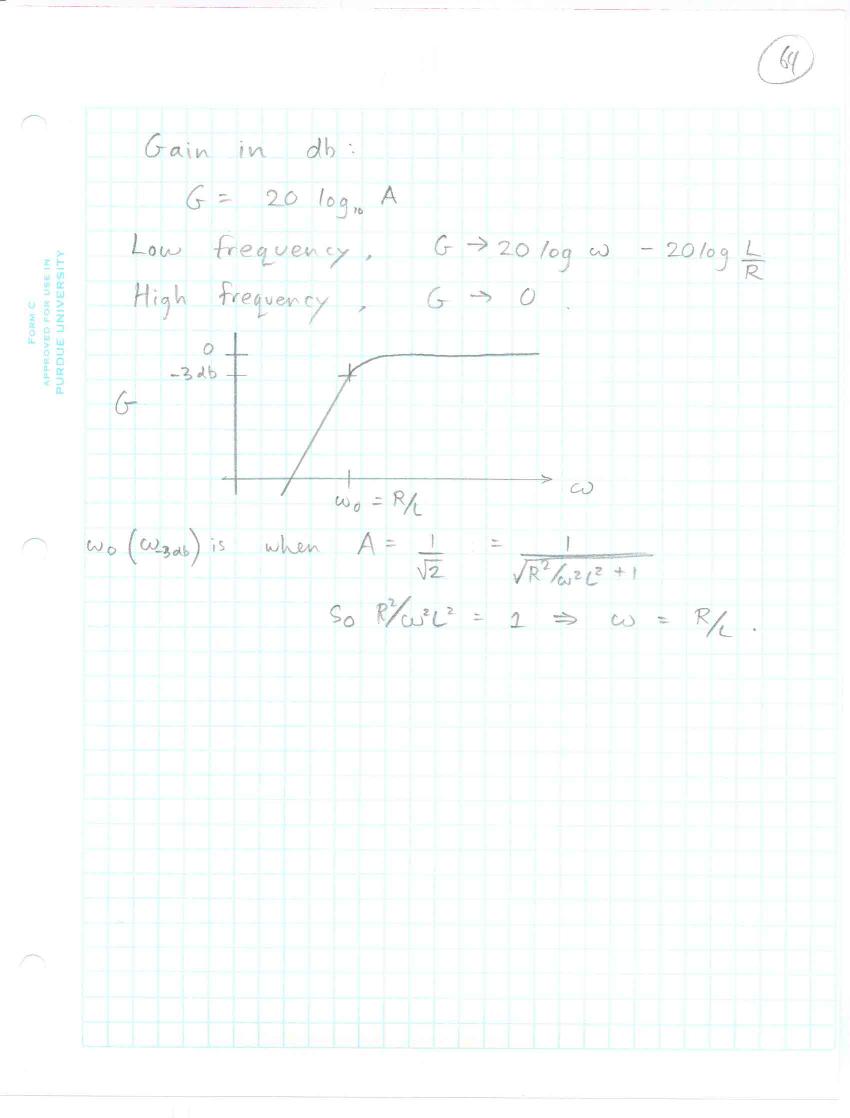 64
FORM C
APPROVED FOR USE IN
PURDUE UNIVERSITY
Gain in db:
G = 20 log₁₀ A
Low frequency, G → 20 log ω - 20 log L/R
High frequency, G → 0.
0
-3db
G
ω
ω₀ = R/L
ω₀ (ω₋₃db) is when A = 1/√2 = 1/√(R²/ω²L² + 1)
So R²/ω²L² = 1 ⇒ ω = R/L.